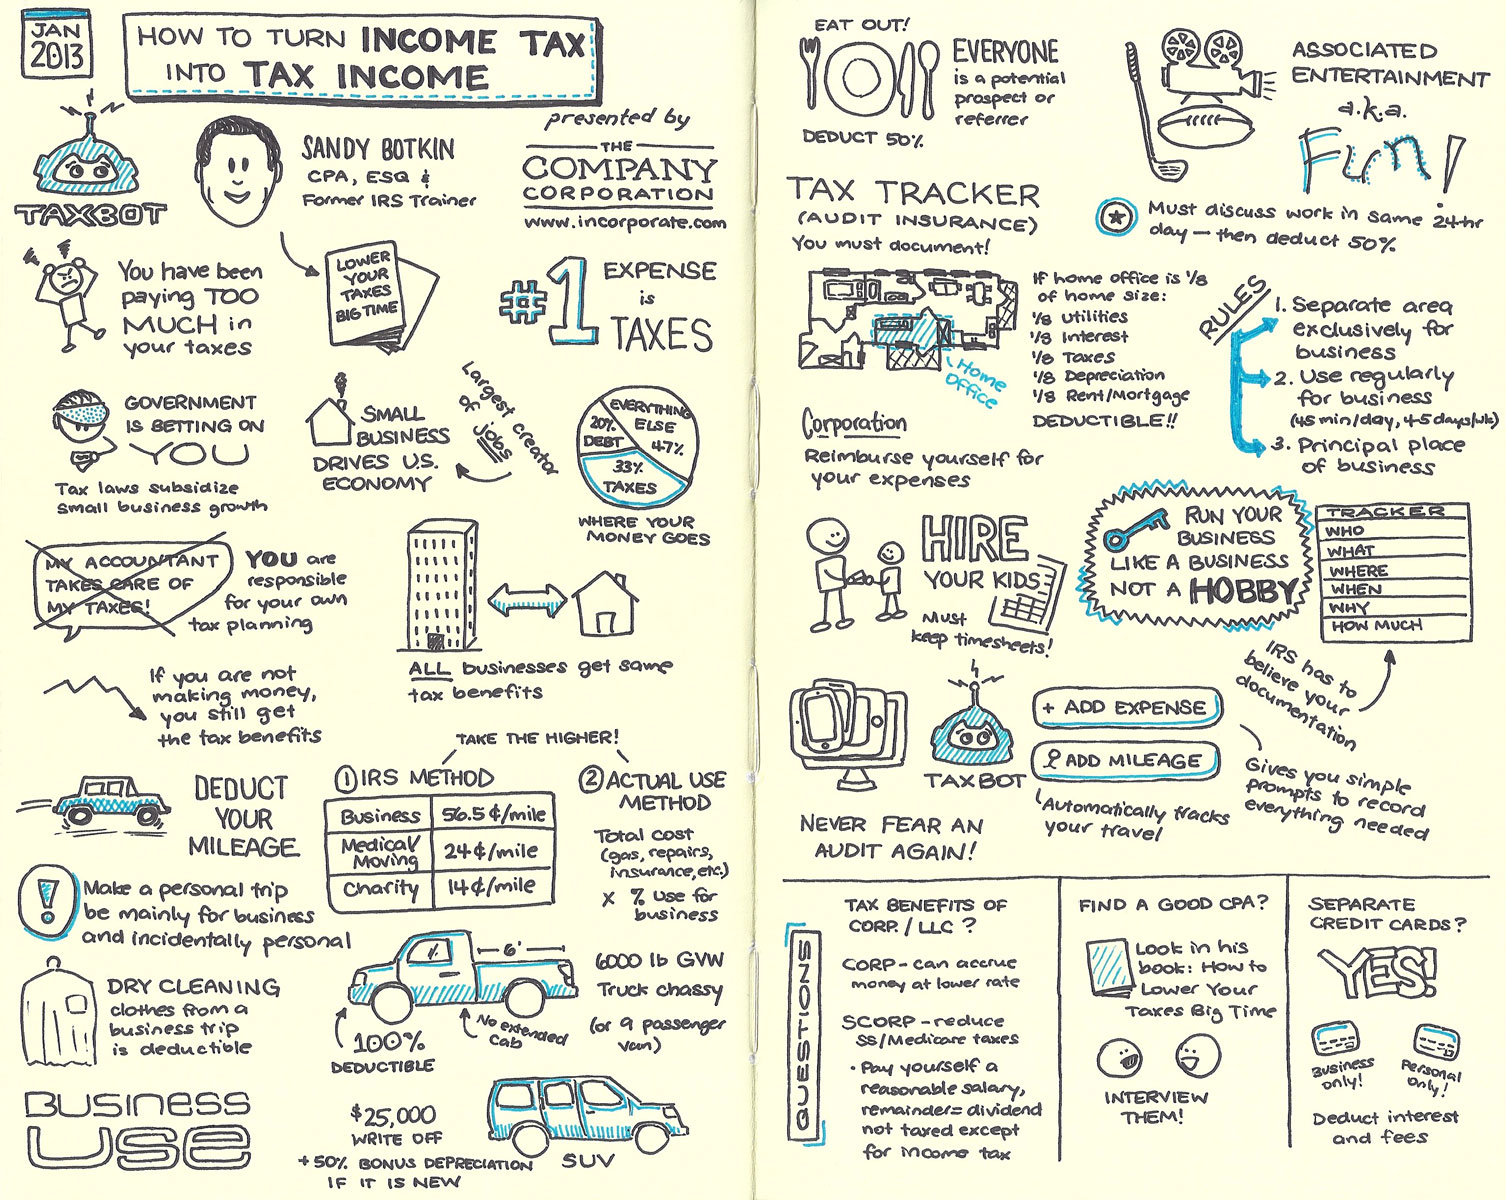 JAN
2013
HOW TO TURN INCOME TAX
INTO TAX INCOME
TAXBOT
SANDY BOTKIN
CPA, ESQ &
Former IRS Trainer
presented by
THE
COMPANY
CORPORATION
www.incorporate.com
You have been
paying TOO
MUCH in
your taxes
LOWER
YOUR
TAXES
BIG TIME
#1 EXPENSE
is
TAXES
GOVERNMENT
IS BETTING ON
YOU
Tax laws subsidize
small business growth
SMALL
BUSINESS
DRIVES U.S.
ECONOMY
Largest creator
of jobs
EVERYTHING
ELSE
47%
20%
DEBT
33%
TAXES
WHERE YOUR
MONEY GOES
MY ACCOUNTANT
TAKES CARE OF
MY TAXES!
YOU are
responsible
for your own
tax planning
ALL businesses get same
tax benefits
If you are not
making money,
you still get
the tax benefits
DEDUCT
YOUR
MILEAGE
TAKE THE HIGHER!
1 IRS METHOD
Business 56.5¢/mile
Medical/
Moving 24¢/mile
Charity 14¢/mile
2 ACTUAL USE
METHOD
Total cost
(gas, repairs,
insurance, etc.)
x % Use for
business
! Make a personal trip
be mainly for business
and incidentally personal
DRY CLEANING
clothes from a
business trip
is deductible
6'
6000 lb GVW
Truck chassy
(or 9 passenger
van)
No extended
cab
100%
DEDUCTIBLE
BUSINESS
USE
$25,000
WRITE OFF
+50% BONUS DEPRECIATION
IF IT IS NEW
SUV
EAT OUT!
DEDUCT 50%
EVERYONE
is a potential
prospect or
referrer
ASSOCIATED
ENTERTAINMENT
a.k.a.
Fun!
Must discuss work in same 24-hr
day — then deduct 50%
TAX TRACKER
(AUDIT INSURANCE)
You must document!
Home
Office
If home office is 1/8
of home size:
1/8 Utilities
1/8 Interest
1/8 Taxes
1/8 Depreciation
1/8 Rent/Mortgage
DEDUCTIBLE!!
RULES
1. Separate area
exclusively for
business
2. Use regularly
for business
(45 min/day, 4-5 days/wk)
3. Principal place
of business
Corporation
Reimburse yourself for
your expenses
HIRE
YOUR KIDS
Must
keep timesheets!
RUN YOUR
BUSINESS
LIKE A BUSINESS
NOT A HOBBY
TRACKER
WHO
WHAT
WHERE
WHEN
WHY
HOW MUCH
IRS has to
believe your
documentation
TAXBOT
+ ADD EXPENSE
ADD MILEAGE
Automatically tracks
your travel
Gives you simple
prompts to record
everything needed
NEVER FEAR AN
AUDIT AGAIN!
QUESTIONS
TAX BENEFITS OF
CORP. / LLC ?
CORP - can accrue
money at lower rate
SCORP - reduce
SS/Medicare taxes
• Pay yourself a
reasonable salary,
remainder = dividend
not taxed except
for income tax
FIND A GOOD CPA?
Look in his
book: How to
Lower Your
Taxes Big Time
INTERVIEW
THEM!
SEPARATE
CREDIT CARDS?
YES!
Business
only!
Personal
only!
Deduct interest
and fees